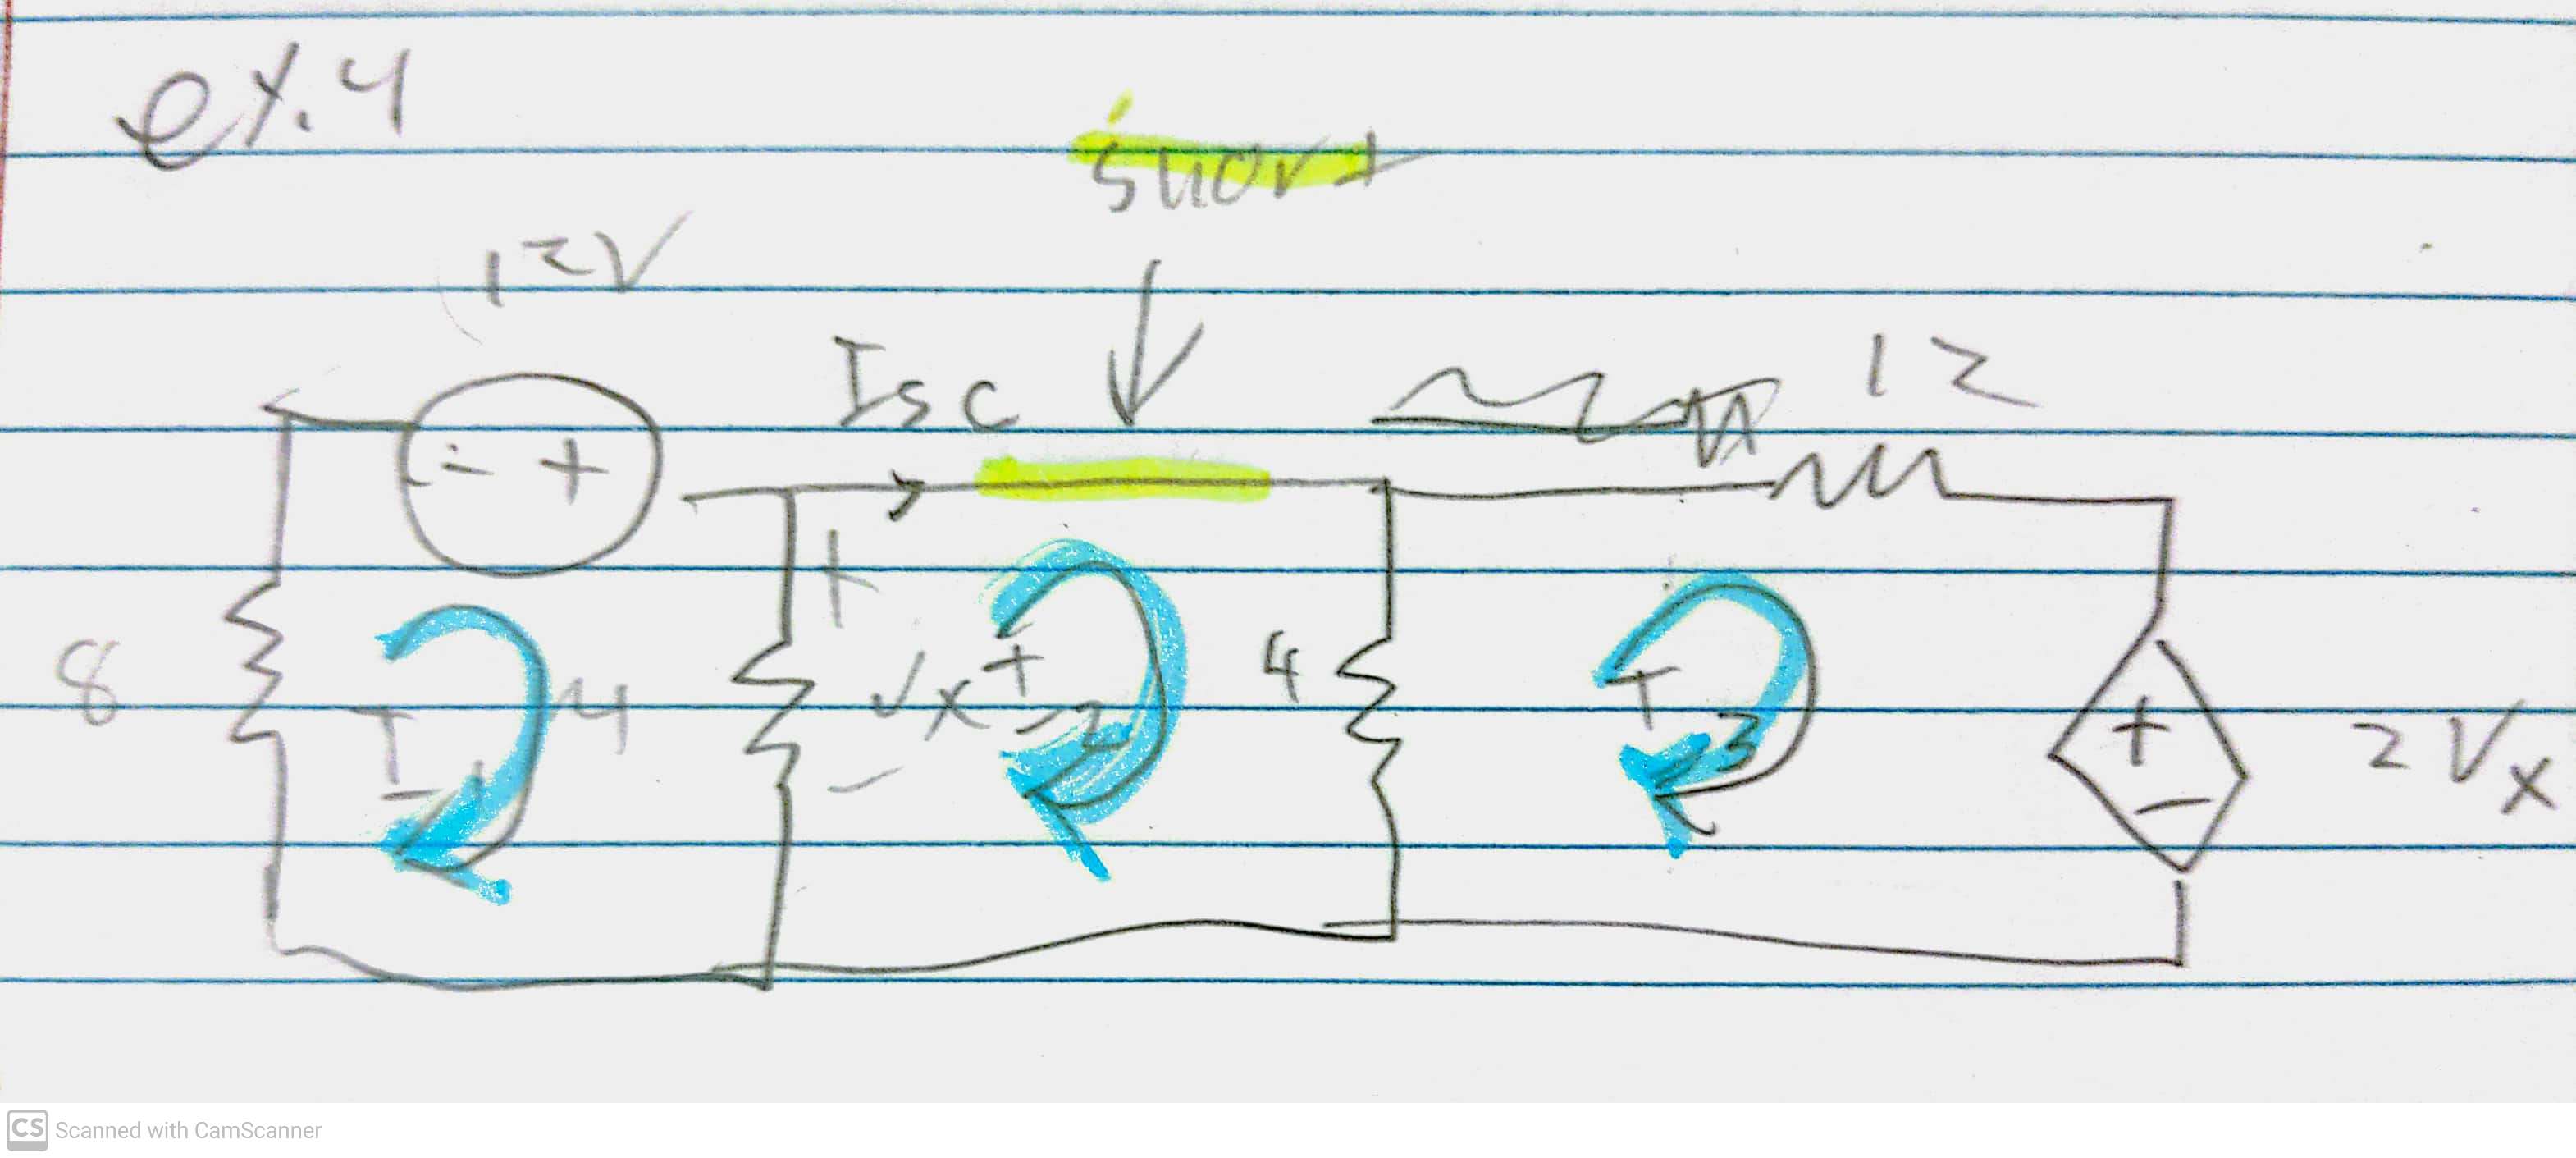 ex.4
short
12V
Isc
12
- +
+
8
I1
4
Vx
+
I2
4
I3
+
-
2Vx
-
CS Scanned with CamScanner